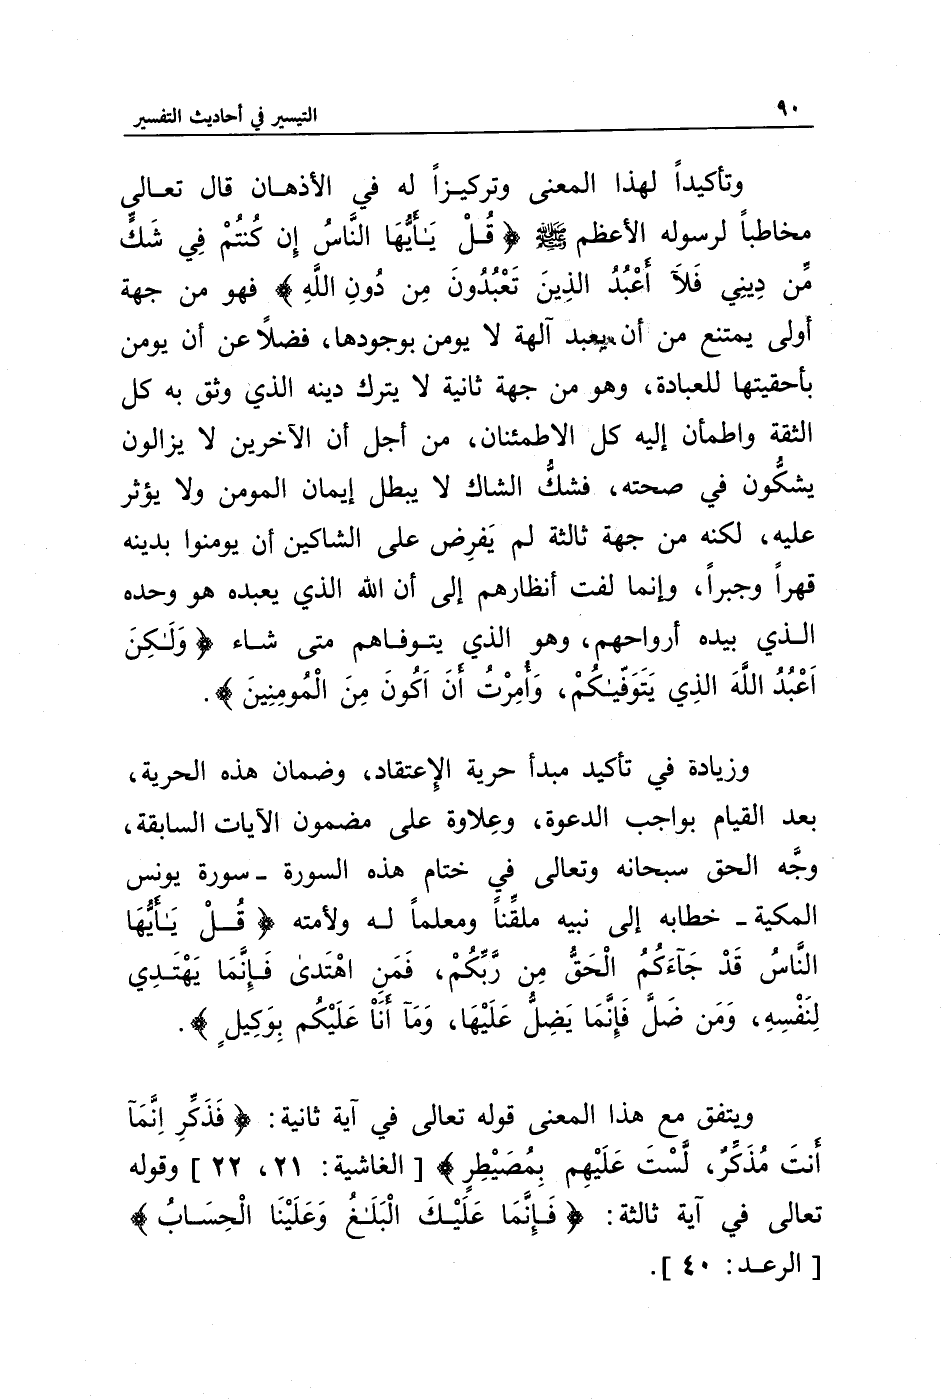 ٩٠ التيسير في أحاديث التفسير
وتأكيداً لهذا المعنى وتركيـزاً له في الأذهـان قال تعـالى
مخاطباً لرسوله الأعظم ﷺ ﴿ قُـلْ يَـٰأَيُّهَا النَّاسُ إِن كُنتُمْ فِي شَكٍّ
مِّن دِينِي فَلَآ أَعْبُدُ الذِينَ تَعْبُدُونَ مِن دُونِ اللَّهِ ﴾ فهو من جهة
أولى يمتنع من أن يعبد آلهة لا يومن بوجودها، فضلاً عن أن يومن
بأحقيتها للعبادة، وهو من جهة ثانية لا يترك دينه الذي وثق به كل
الثقة واطمأن إليه كل الاطمئنان، من أجل أن الآخرين لا يزالون
يشكُّون في صحته، فشكُّ الشاك لا يبطل إيمان المومن ولا يؤثر
عليه، لكنه من جهة ثالثة لم يَفرِض على الشاكين أن يومنوا بدينه
قهراً وجبراً، وإنما لفت أنظارهم إلى أن الله الذي يعبده هو وحده
الـذي بيده أرواحهم، وهو الذي يتـوفـاهم متى شـاء ﴿ وَلَـٰكِنَ
اَعْبُدُ اللَّهَ الذِي يَتَوَفّيٰكُمْ، وَأُمِرْتُ أَنَ اَكُونَ مِنَ الْمُومِنِينَ ﴾.
وزيادة في تأكيد مبدأ حرية الإعتقاد، وضمان هذه الحرية،
بعد القيام بواجب الدعوة، وعِلاوة على مضمون الآيات السابقة،
وجَّه الحق سبحانه وتعالى في ختام هذه السورة ـ سورة يونس
المكية ـ خطابه إلى نبيه ملقِّناً ومعلماً لـه ولأمته ﴿ قُـلْ يَـٰأَيُّهَا
النَّاسُ قَدْ جَآءَكُمُ الْحَقُّ مِن رَّبِّكُمْ، فَمَنِ اهْتَدىٰ فَـإِنَّمَا يَهْتَـدِي
لِنَفْسِهِ، وَمَن ضَلَّ فَإِنَّمَا يَضِلُّ عَلَيْهَا، وَمَآ أَنَا عَلَيْكُم بِوَكِيلٍ ﴾.
ويتفق مع هذا المعنى قوله تعالى في آية ثانية: ﴿ فَذَكِّرِ اِنَّمَآ
أَنتَ مُذَكِّرٌ، لَّسْتَ عَلَيْهِم بِمُصَيْطِرٍ ﴾ [ الغاشية: ٢١، ٢٢ ] وقوله
تعالى في آية ثالثة: ﴿ فَـإِنَّمَا عَلَيْـكَ الْبَلَـٰغُ وَعَلَيْنَا الْحِسَـابُ ﴾
[ الرعـد: ٤٠ ].